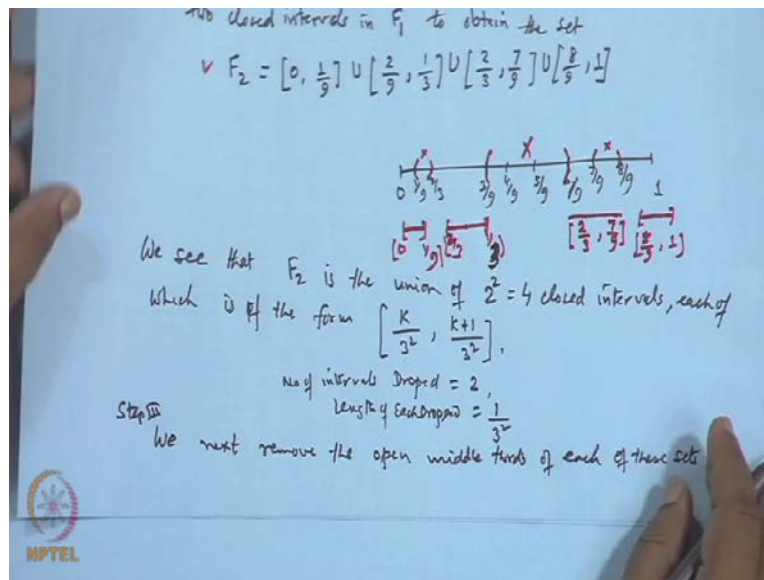 two closed intervals in F₁ to obtain the set
v F₂ = [0, 1/9] ∪ [2/9, 1/3] ∪ [2/3, 7/9] ∪ [8/9, 1]
x X x
0 1/9 2/3 3/9 4/9 5/9 6/9 7/9 8/9 1
[0 1/9] [2/3, 7/9] [8/9, 1]
We see that F₂ is the union of 2² = 4 closed intervals, each of
which is of the form [K/3², K+1/3²],
No of intervals Droped = 2,
Step III
Length of Each Droped = 1/3²
We next remove the open middle thirds of each of these sets
NPTEL